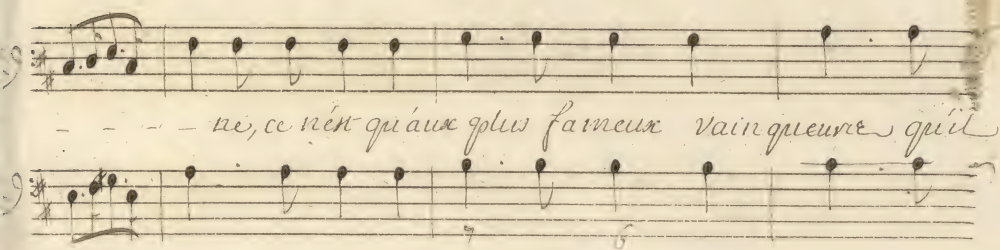 - - - - ne, ce n'est qu'aux plus fameux vainqueurs qu'il
7 6